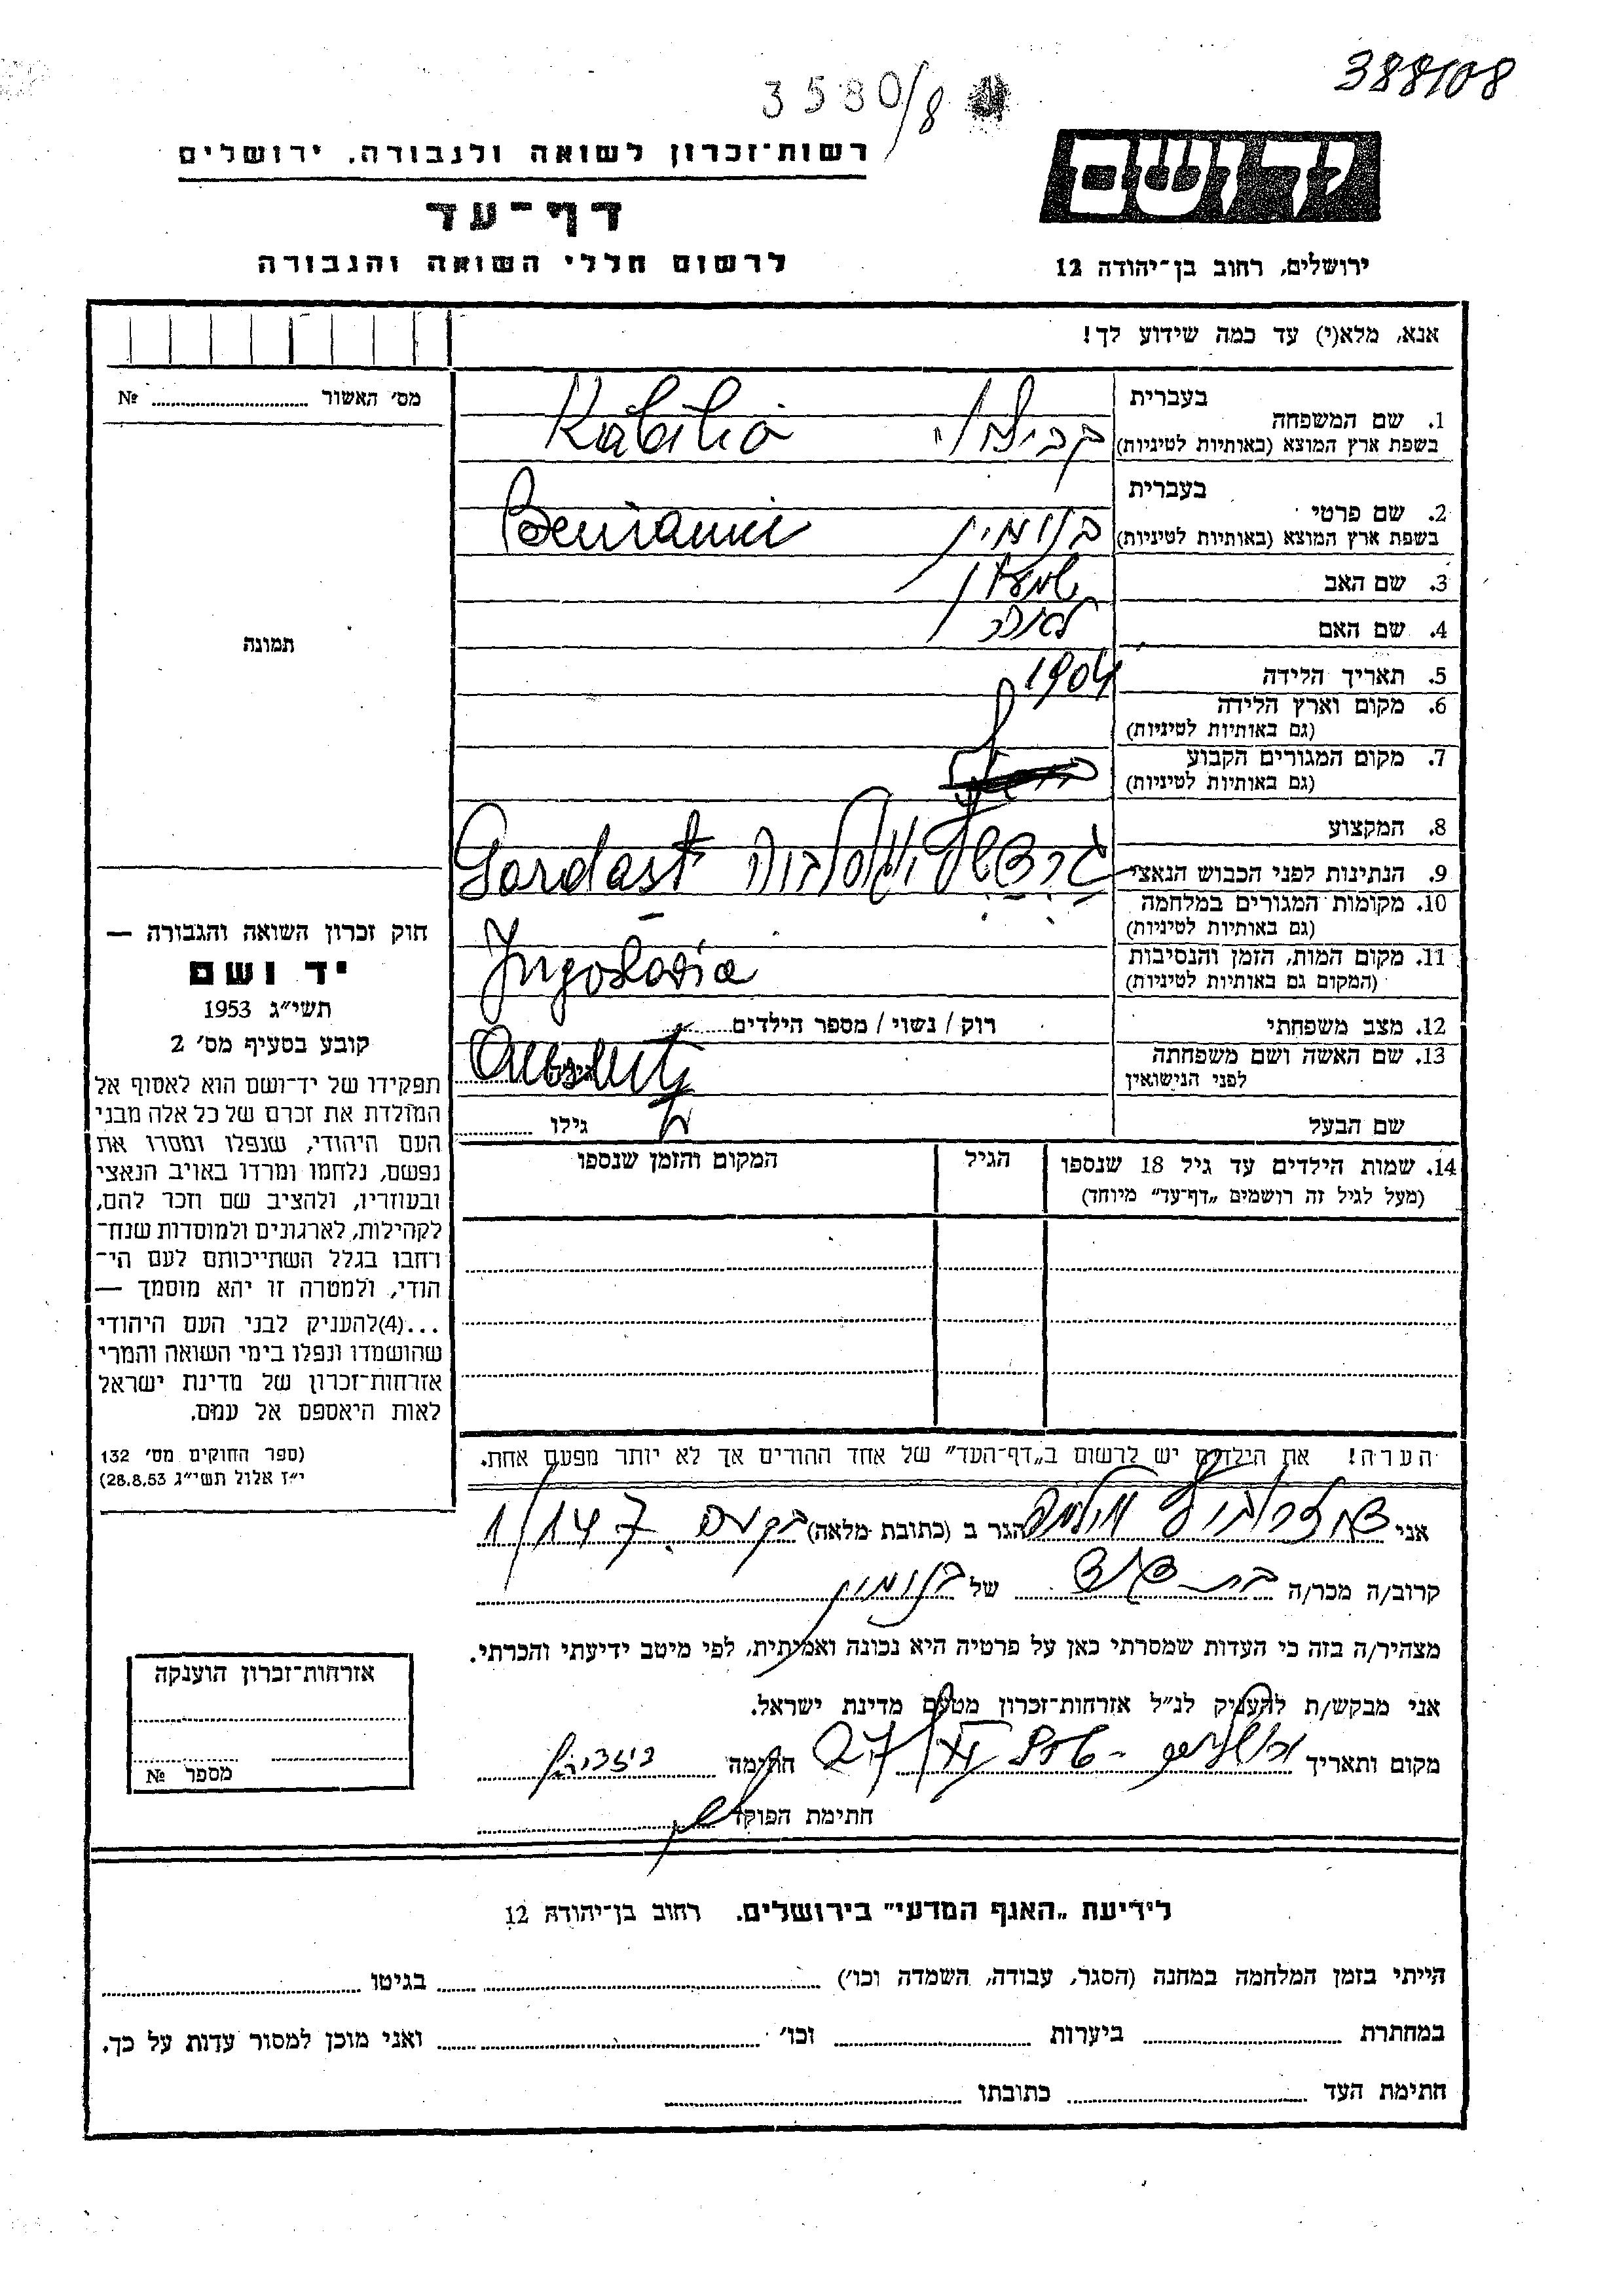 388108
3580/8
רשות־זכרון לשואה ולגבורה, ירושלים
ידושם
דף־עד
לרשום חללי השואה והגבורה
ירושלים, רחוב בן־יהודה 12
אנא, מלא(י) עד כמה שידוע לך!
מס׳ האשור № 
תמונה
1. שם המשפחה
בעברית
בשפת ארץ המוצא (באותיות לטיניות)
קביליו
Kabilio
2. שם פרטי
בעברית
בשפת ארץ המוצא (באותיות לטיניות)
בנימין
Beniamin
3. שם האב
שמעון
4. שם האם
לאורה
5. תאריך הלידה
1904
6. מקום וארץ הלידה
(גם באותיות לטיניות)
7. מקום המגורים הקבוע
(גם באותיות לטיניות)
8. המקצוע
9. הנתינות לפני הכבוש הנאצי
Gardast
10. מקומות המגורים במלחמה
(גם באותיות לטיניות)
11. מקום המות, הזמן והנסיבות
(המקום גם באותיות לטיניות)
Jugoslavia
12. מצב משפחתי
רוק / נשוי / מספר הילדים
13. שם האשה ושם משפחתה
לפני הנישואין
שם הבעל
גילו
14. שמות הילדים עד גיל 18 שנספו
(מעל לגיל זה רושמים „דף־עד״ מיוחד)
הגיל
המקום והזמן שנספו
הערה! את הילדים יש לרשום ב„דף־העד״ של אחד ההורים אך לא יותר מפעם אחת.
חוק זכרון השואה והגבורה —
יד ושם
תשי״ג 1953
קובע בסעיף מס׳ 2
תפקידו של יד־ושם הוא לאסוף אל
המולדת את זכרם של כל אלה מבני
העם היהודי, שנפלו ומסרו את
נפשם, נלחמו ומרדו באויב הנאצי
ובעוזריו, ולהציב שם וזכר להם,
לקהילות, לארגונים ולמוסדות שנח־
רחבו בגלל השתייכותם לעם הי־
הודי, ולמטרה זו יהא מוסמך —
...(4)להעניק לבני העם היהודי
שהושמדו ונפלו בימי השואה והמרי
אזרחות־זכרון של מדינת ישראל
לאות היאספם אל עמם.
(ספר החוקים מס׳ 132
י״ז אלול תשי״ג 28.8.53)
אני הגר ב (כתובת מלאה) 147/1
קרוב/ה מכר/ה בת דוד של בנימין
מצהיר/ה בזה כי העדות שמסרתי כאן על פרטיה היא נכונה ואמיתית, לפי מיטב ידיעתי והכרתי.
אני מבקש/ת להעניק לנ״ל אזרחות־זכרון מטעם מדינת ישראל.
מקום ותאריך ירושלים חתימה
חתימת הפוקד
אזרחות־זכרון הוענקה
מספר №
לידיעת „האגף המדעי״ בירושלים. רחוב בן־יהודה 12
הייתי בזמן המלחמה במחנה (הסגר, עבודה, השמדה וכו׳) בגיטו
במחתרת ביערות וכו׳ ואני מוכן למסור עדות על כך.
חתימת העד כתובתו